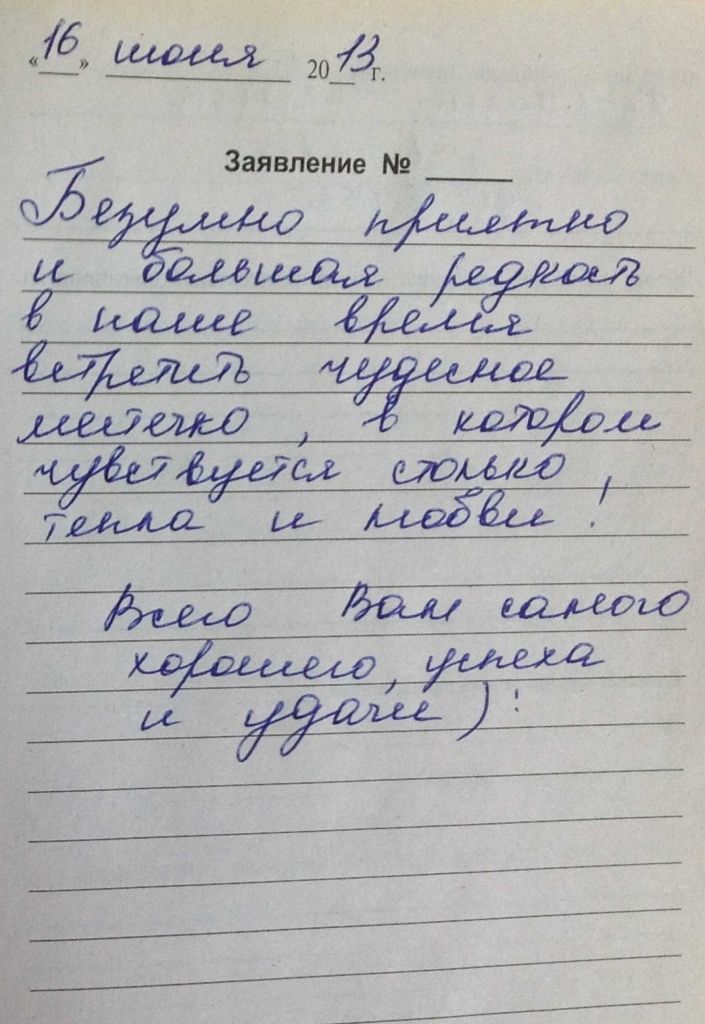 «16» июня 2013г.
Заявление № ____
Безумно приятно
и большая редкость
в наше время
встретить чудесное
местечко, в котором
чувствуется столько
тепла и любви!
Всего Вам самого
хорошего, успеха
и удачи ) :